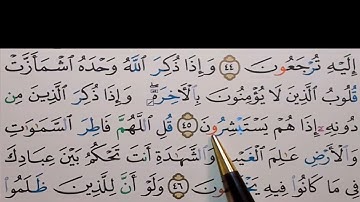 إِلَيْهِ تُرْجَعُونَ ٤٤ وَإِذَا ذُكِرَ ٱللَّهُ وَحْدَهُ ٱشْمَأَزَّتْ
قُلُوبُ ٱلَّذِينَ لَا يُؤْمِنُونَ بِٱلْأَخِرَةِ وَإِذَا ذُكِرَ ٱلَّذِينَ مِن
دُونِهِ إِذَا هُمْ يَسْتَبْشِرُونَ ٤٥ قُلِ ٱللَّهُمَّ فَاطِرَ ٱلسَّمَٰوَٰتِ
وَٱلْأَرْضِ عَٰلِمَ ٱلْغَيْبِ وَٱلشَّهَٰدَةِ أَنتَ تَحْكُمُ بَيْنَ عِبَادِكَ
فِي مَا كَانُوا۟ فِيهِ ٤٦ وَلَوْ أَنَّ لِلَّذِينَ ظَلَمُوا۟